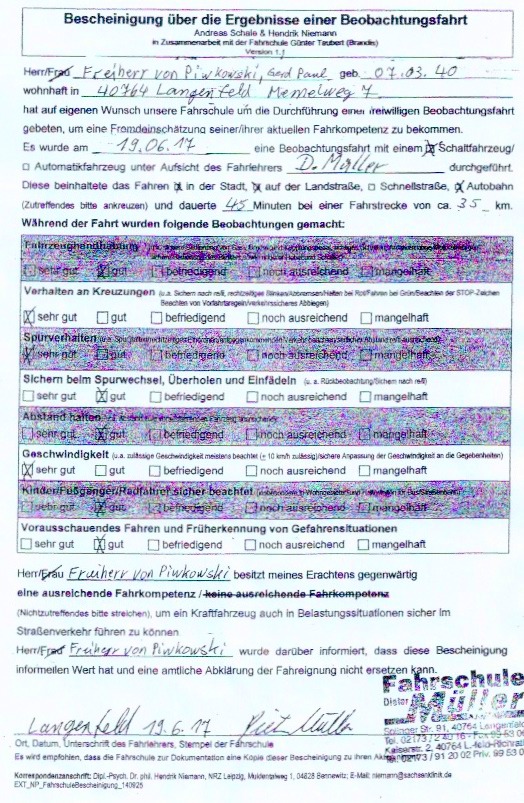 Bescheinigung über die Ergebnisse einer Beobachtungsfahrt
Andreas Schale & Hendrik Niemann
in Zusammenarbeit mit der Fahrschule Günter Taubert (Brandis)
Version 1.1
Herr/Frau Freiherr von Piwkowski, Gerd Paul geb. 07.03.40
wohnhaft in 40764 Langenfeld Memelweg 7
hat auf eigenen Wunsch unsere Fahrschule um die Durchführung einer freiwilligen Beobachtungsfahrt
gebeten, um eine Fremdeinschätzung seiner/ihrer aktuellen Fahrkompetenz zu bekommen.
Es wurde am 19.06.17 eine Beobachtungsfahrt mit einem ☒ Schaltfahrzeug/
☐ Automatikfahrzeug unter Aufsicht des Fahrlehrers D. Müller durchgeführt.
Diese beinhaltete das Fahren ☒ in der Stadt, ☒ auf der Landstraße, ☐ Schnellstraße, ☒ Autobahn
(Zutreffendes bitte ankreuzen) und dauerte 45 Minuten bei einer Fahrstrecke von ca. 35 km.
Während der Fahrt wurden folgende Beobachtungen gemacht:
Fahrzeughandhabung
☐ sehr gut ☒ gut ☐ befriedigend ☐ noch ausreichend ☐ mangelhaft
Verhalten an Kreuzungen (u.a. Sichern nach re/li, rechtzeitiges Blinken/Abbremsen/Halten bei Rot/Fahren bei Grün/Beachten der STOP-Zeichen
Beachten von Vorfahrtsregeln/verkehrssicheres Abbiegen)
☒ sehr gut ☐ gut ☐ befriedigend ☐ noch ausreichend ☐ mangelhaft
Spurverhalten
☒ sehr gut ☐ gut ☐ befriedigend ☐ noch ausreichend ☐ mangelhaft
Sichern beim Spurwechsel, Überholen und Einfädeln (u. a. Rückbeobachtung/Sichern nach re/li)
☐ sehr gut ☒ gut ☐ befriedigend ☐ noch ausreichend ☐ mangelhaft
Abstand halten
☐ sehr gut ☒ gut ☐ befriedigend ☐ noch ausreichend ☐ mangelhaft
Geschwindigkeit (u.a. zulässige Geschwindigkeit meistens beachtet (± 10 km/h zulässig)/sichere Anpassung der Geschwindigkeit an die Gegebenheiten)
☒ sehr gut ☐ gut ☐ befriedigend ☐ noch ausreichend ☐ mangelhaft
Kinder/Fußgänger/Radfahrer sicher beachtet
☐ sehr gut ☒ gut ☐ befriedigend ☐ noch ausreichend ☐ mangelhaft
Vorausschauendes Fahren und Früherkennung von Gefahrensituationen
☐ sehr gut ☒ gut ☐ befriedigend ☐ noch ausreichend ☐ mangelhaft
Herr/Frau Freiherr von Piwkowski besitzt meines Erachtens gegenwärtig
eine ausreichende Fahrkompetenz / keine ausreichende Fahrkompetenz
(Nichtzutreffendes bitte streichen), um ein Kraftfahrzeug auch in Belastungssituationen sicher im
Straßenverkehr führen zu können
Herr/Frau Freiherr von Piwkowski wurde darüber informiert, dass diese Bescheinigung
informellen Wert hat und eine amtliche Abklärung der Fahreignung nicht ersetzen kann.
Fahrschule
Dieter Müller
Solinger Str. 91, 40764 Langenfeld
Kaiserstr. 2, 40764 L.-feld-Richrath
Langenfeld 19.6.17 Müller
Ort, Datum, Unterschrift des Fahrlehrers, Stempel der Fahrschule
Es wird empfohlen, dass die Fahrschule zur Dokumentation eine Kopie dieser Bescheinigung zu ihren
Korrespondenzanschrift: Dipl.-Psych. Dr. phil. Hendrik Niemann, NRZ Leipzig, Muldentalweg 1, 04828 Bennewitz; E-Mail: niemann@sachsenklinik.de
EXT_NP_FahrschuleBescheinigung_140925